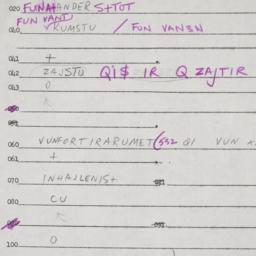 020 FUNAHANDER S+TOT
FUN VANT
040 VKUMSTU / FUN VANZN
041 +
042 ZAJSTU QI$ IR Q ZAJTIR
043 0
060 VUNFORTIRARUMET(552 QI VUN
061 +
070 INHALLENIS+
080 CU
100 0